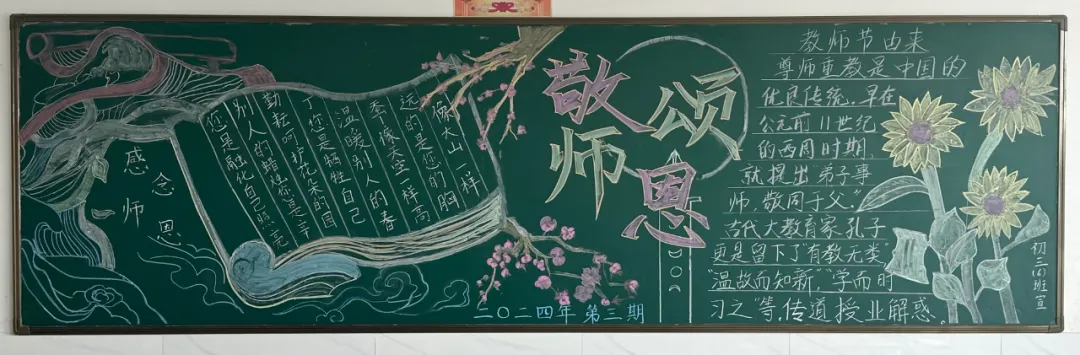 感念
师恩
您是融化自己照亮
别人的蜡烛您是辛
勤耘呵护花朵的园
丁您是牺牲自己
温暖别人的春
季，像天空一样高
远的是您的胸
像大山一样
敬师
颂恩
二〇二四年第三期
教师节由来
尊师重教是中国的
优良传统，早在
公元前11世纪
的西周时期，
就提出“弟子事
师，敬同于父。”
古代大教育家孔子
更是留下了“有教无类”
“温故而知新，”“学而时
习之”等，传道授业解惑。
初三(四)班宣